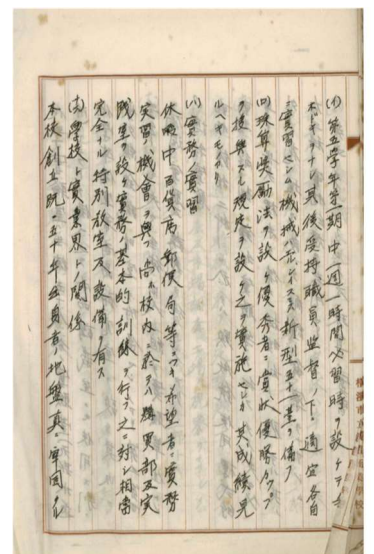 (イ)第五学年第一期中一週一時間必習時ヲ設ケテ
ホドキヲナシ其後度将職員監督ノ下ニ適宜各自
ニ実習セシム機械ハモンレイス式新型五十一基ヲ備フ
(ロ)珠算奨励法ヲ設ケ優秀者ニ賞状優勝カップ
ヲ授与スル規定ヲ設ケ之ヲ実施セシガ其成績見
ルベキモノアリ
(ハ)実務ノ実習
休暇中百貨店郵便局等ニツキ希望者ニ実務
実習ノ機会ヲ与フ尚ホ校内ニ於テハ購買部及実
践室ヲ設ケ実務ノ基本的訓練ヲ行フ之ニ対シ相当
完全ナル特別教室及設備ヲ有ス
学校ト実業界トノ関係
本校創立既ニ五十年卒業者ノ地盤真ニ鞏固ナル